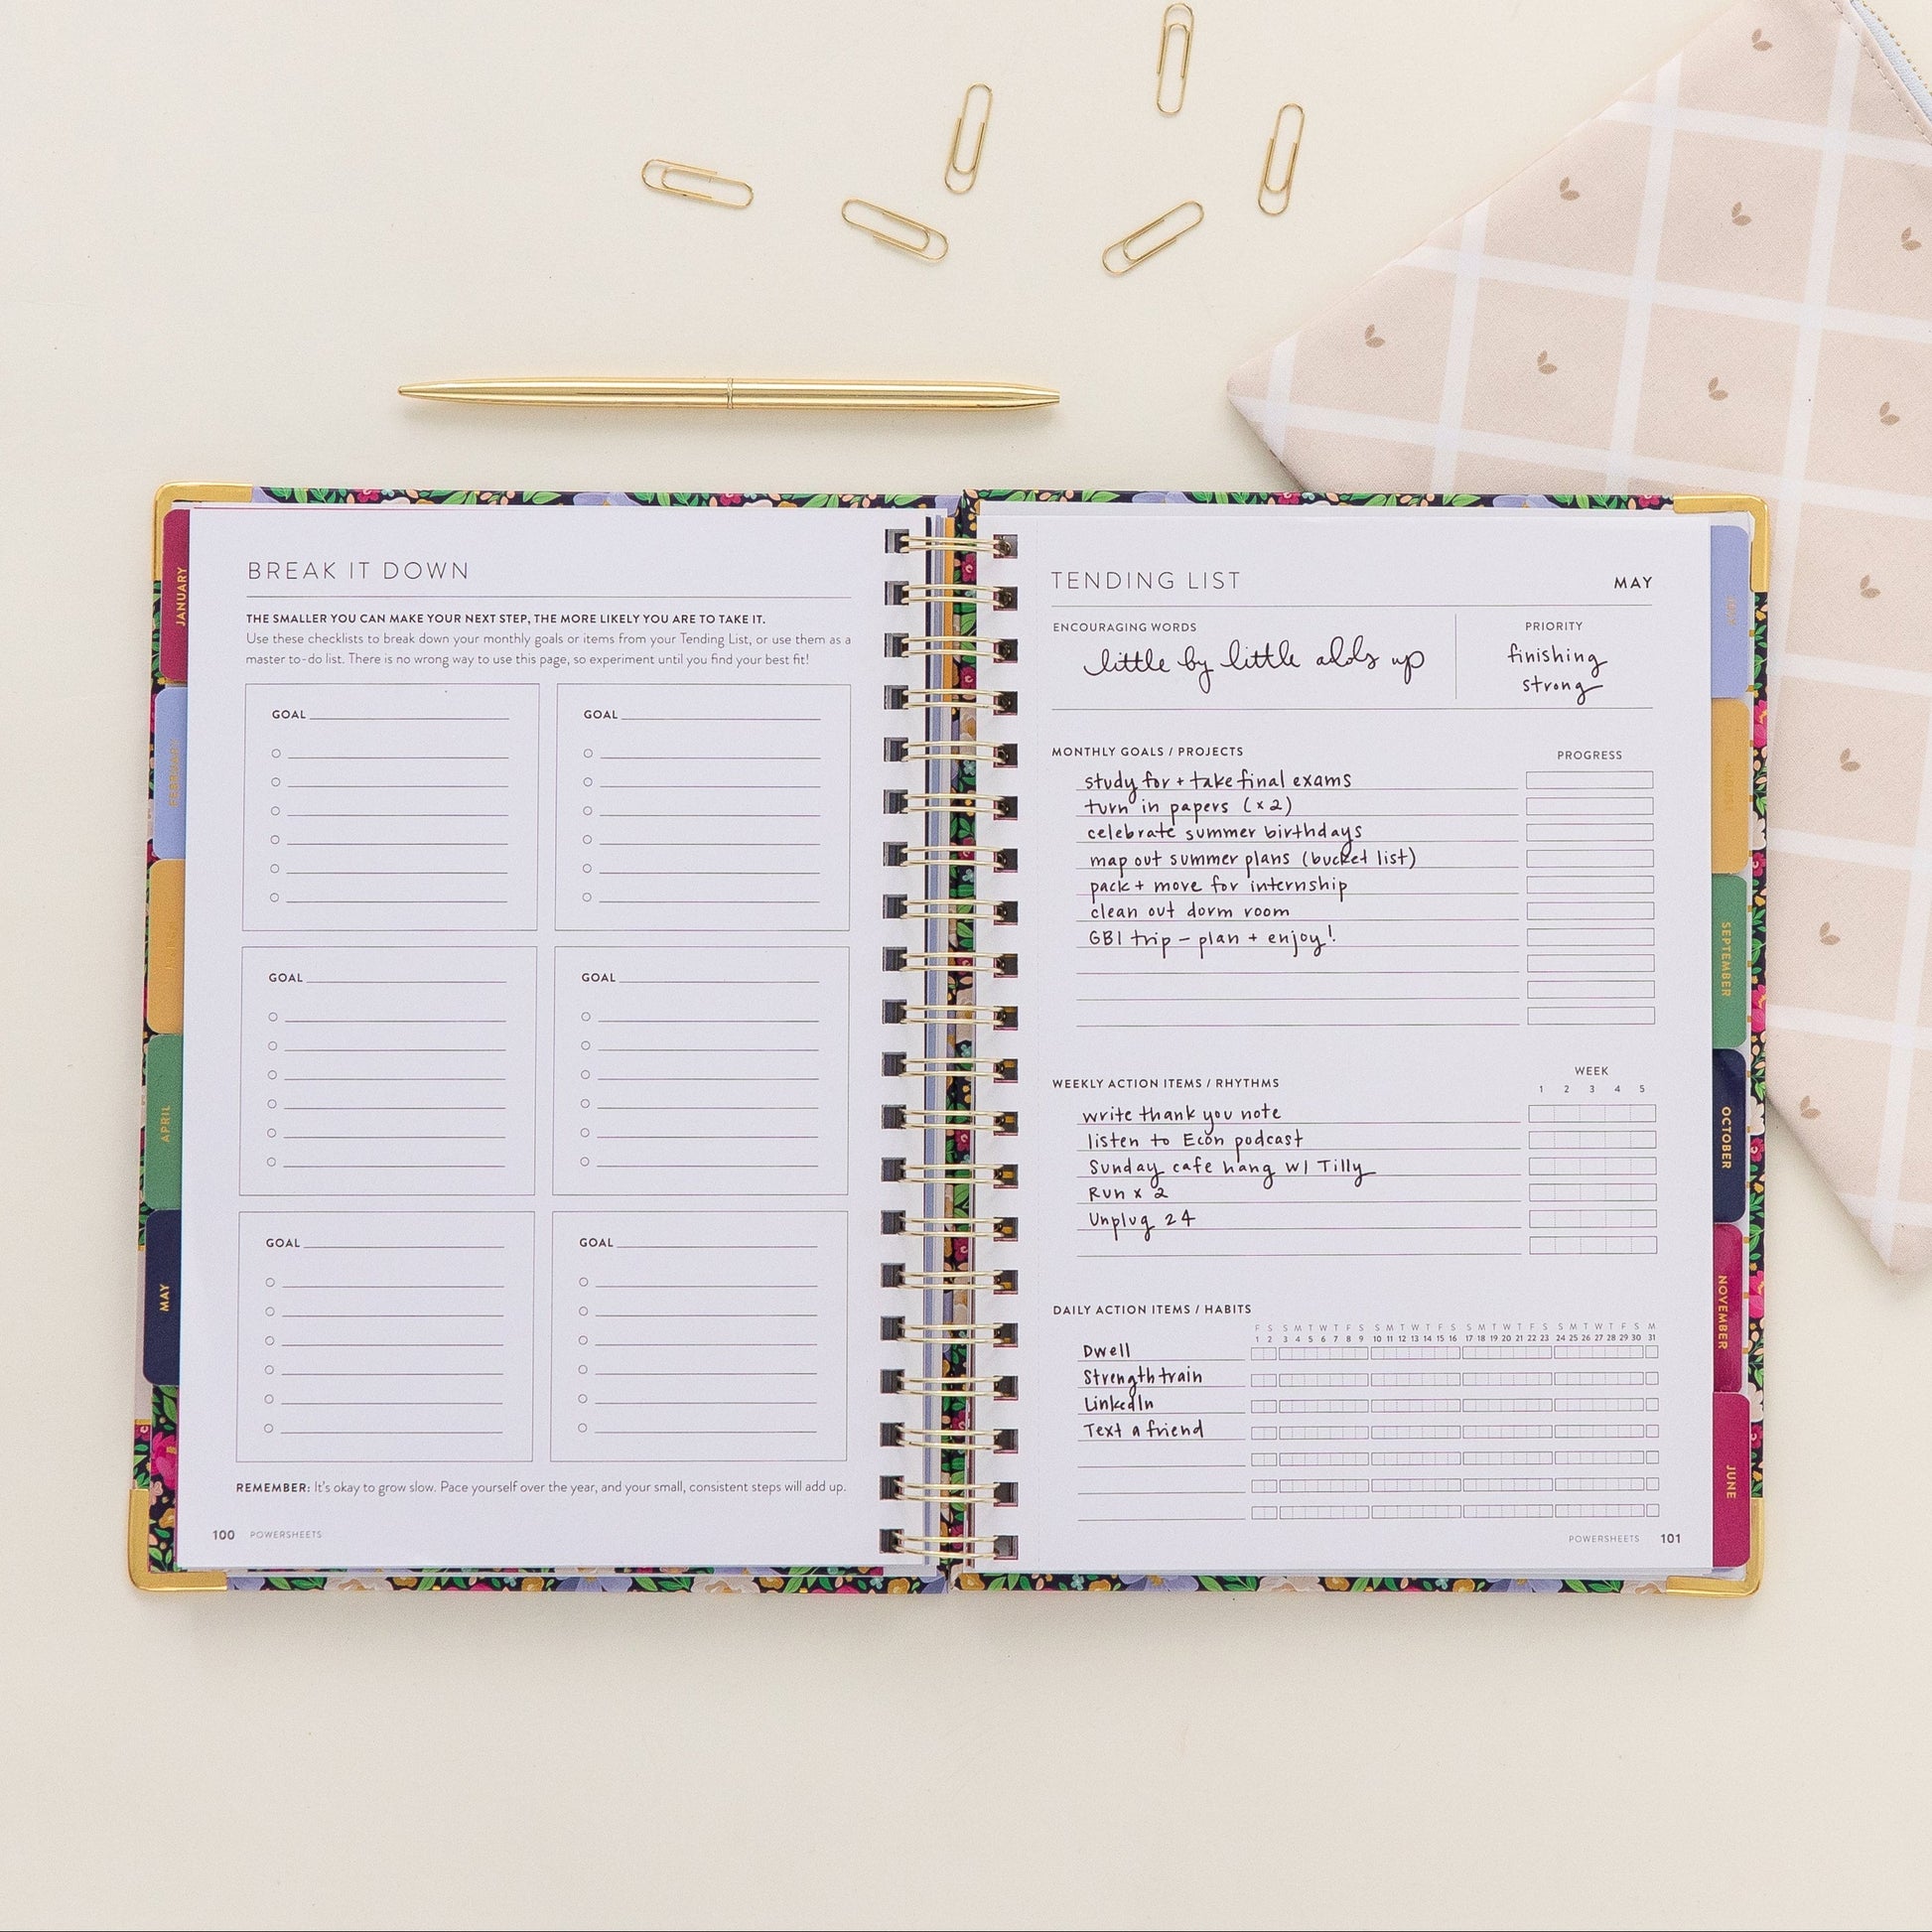 BREAK IT DOWN
THE SMALLER YOU CAN MAKE YOUR NEXT STEP, THE MORE LIKELY YOU ARE TO TAKE IT.
Use these checklists to break down your monthly goals or items from your Tending List, or use them as a
master to-do list. There is no wrong way to use this page, so experiment until you find your best fit!
GOAL
GOAL
GOAL
GOAL
GOAL
GOAL
REMEMBER: It's okay to grow slow. Pace yourself over the year, and your small, consistent steps will add up.
100 POWERSHEETS
JANUARY
FEBRUARY
APRIL
MAY
TENDING LIST
MAY
ENCOURAGING WORDS
little by little adds up
PRIORITY
finishing
strong
MONTHLY GOALS / PROJECTS
PROGRESS
study for + take final exams
turn in papers (x2)
celebrate summer birthdays
map out summer plans (bucket list)
pack + move for internship
clean out dorm room
GBI trip - plan + enjoy!
WEEKLY ACTION ITEMS / RHYTHMS
WEEK
1 2 3 4 5
write thank you note
listen to Econ podcast
Sunday cafe hang w/ Tilly
Run x 2
Unplug 24
DAILY ACTION ITEMS / HABITS
F S S M T W T F S S M T W T F S S M T W T F S S M T W T F S M
1 2 3 4 5 6 7 8 9 10 11 12 13 14 15 16 17 18 19 20 21 22 23 24 25 26 27 28 29 30 31
Dwell
Strength train
LinkedIn
Text a friend
POWERSHEETS 101
JULY
AUGUST
SEPTEMBER
OCTOBER
NOVEMBER
JUNE